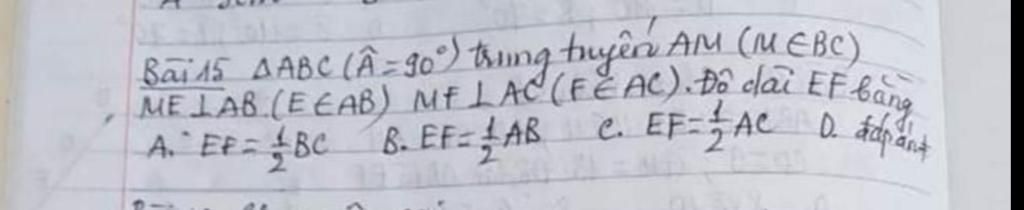 Bài 15 ΔABC (Â = 90°) trung tuyến AM (M ∈ BC)
ME ⊥ AB (E ∈ AB) MF ⊥ AC (F ∈ AC). Độ dài EF bằng
A. EF = 1/2 BC B. EF = 1/2 AB C. EF = 1/2 AC D. đáp án